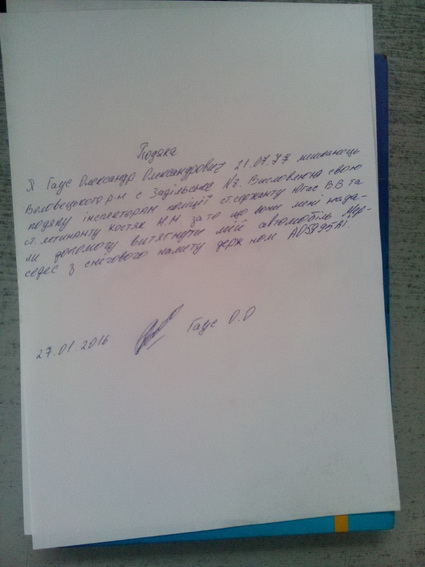 Подяка
Я Гаде Олександр Олександрович 11.07.77 мешканець
Воловецького р-н с Задільське Висловлююю свою
подяку інспекторам поліції ст. сержанту В.В та
ст. лейтинанту Костяк Н.М за то що вони мені нада-
ли допомогу витягнути мій автомобіль Мер-
седес з снігового намету держ ном
27.01.2016 Гаде О.О